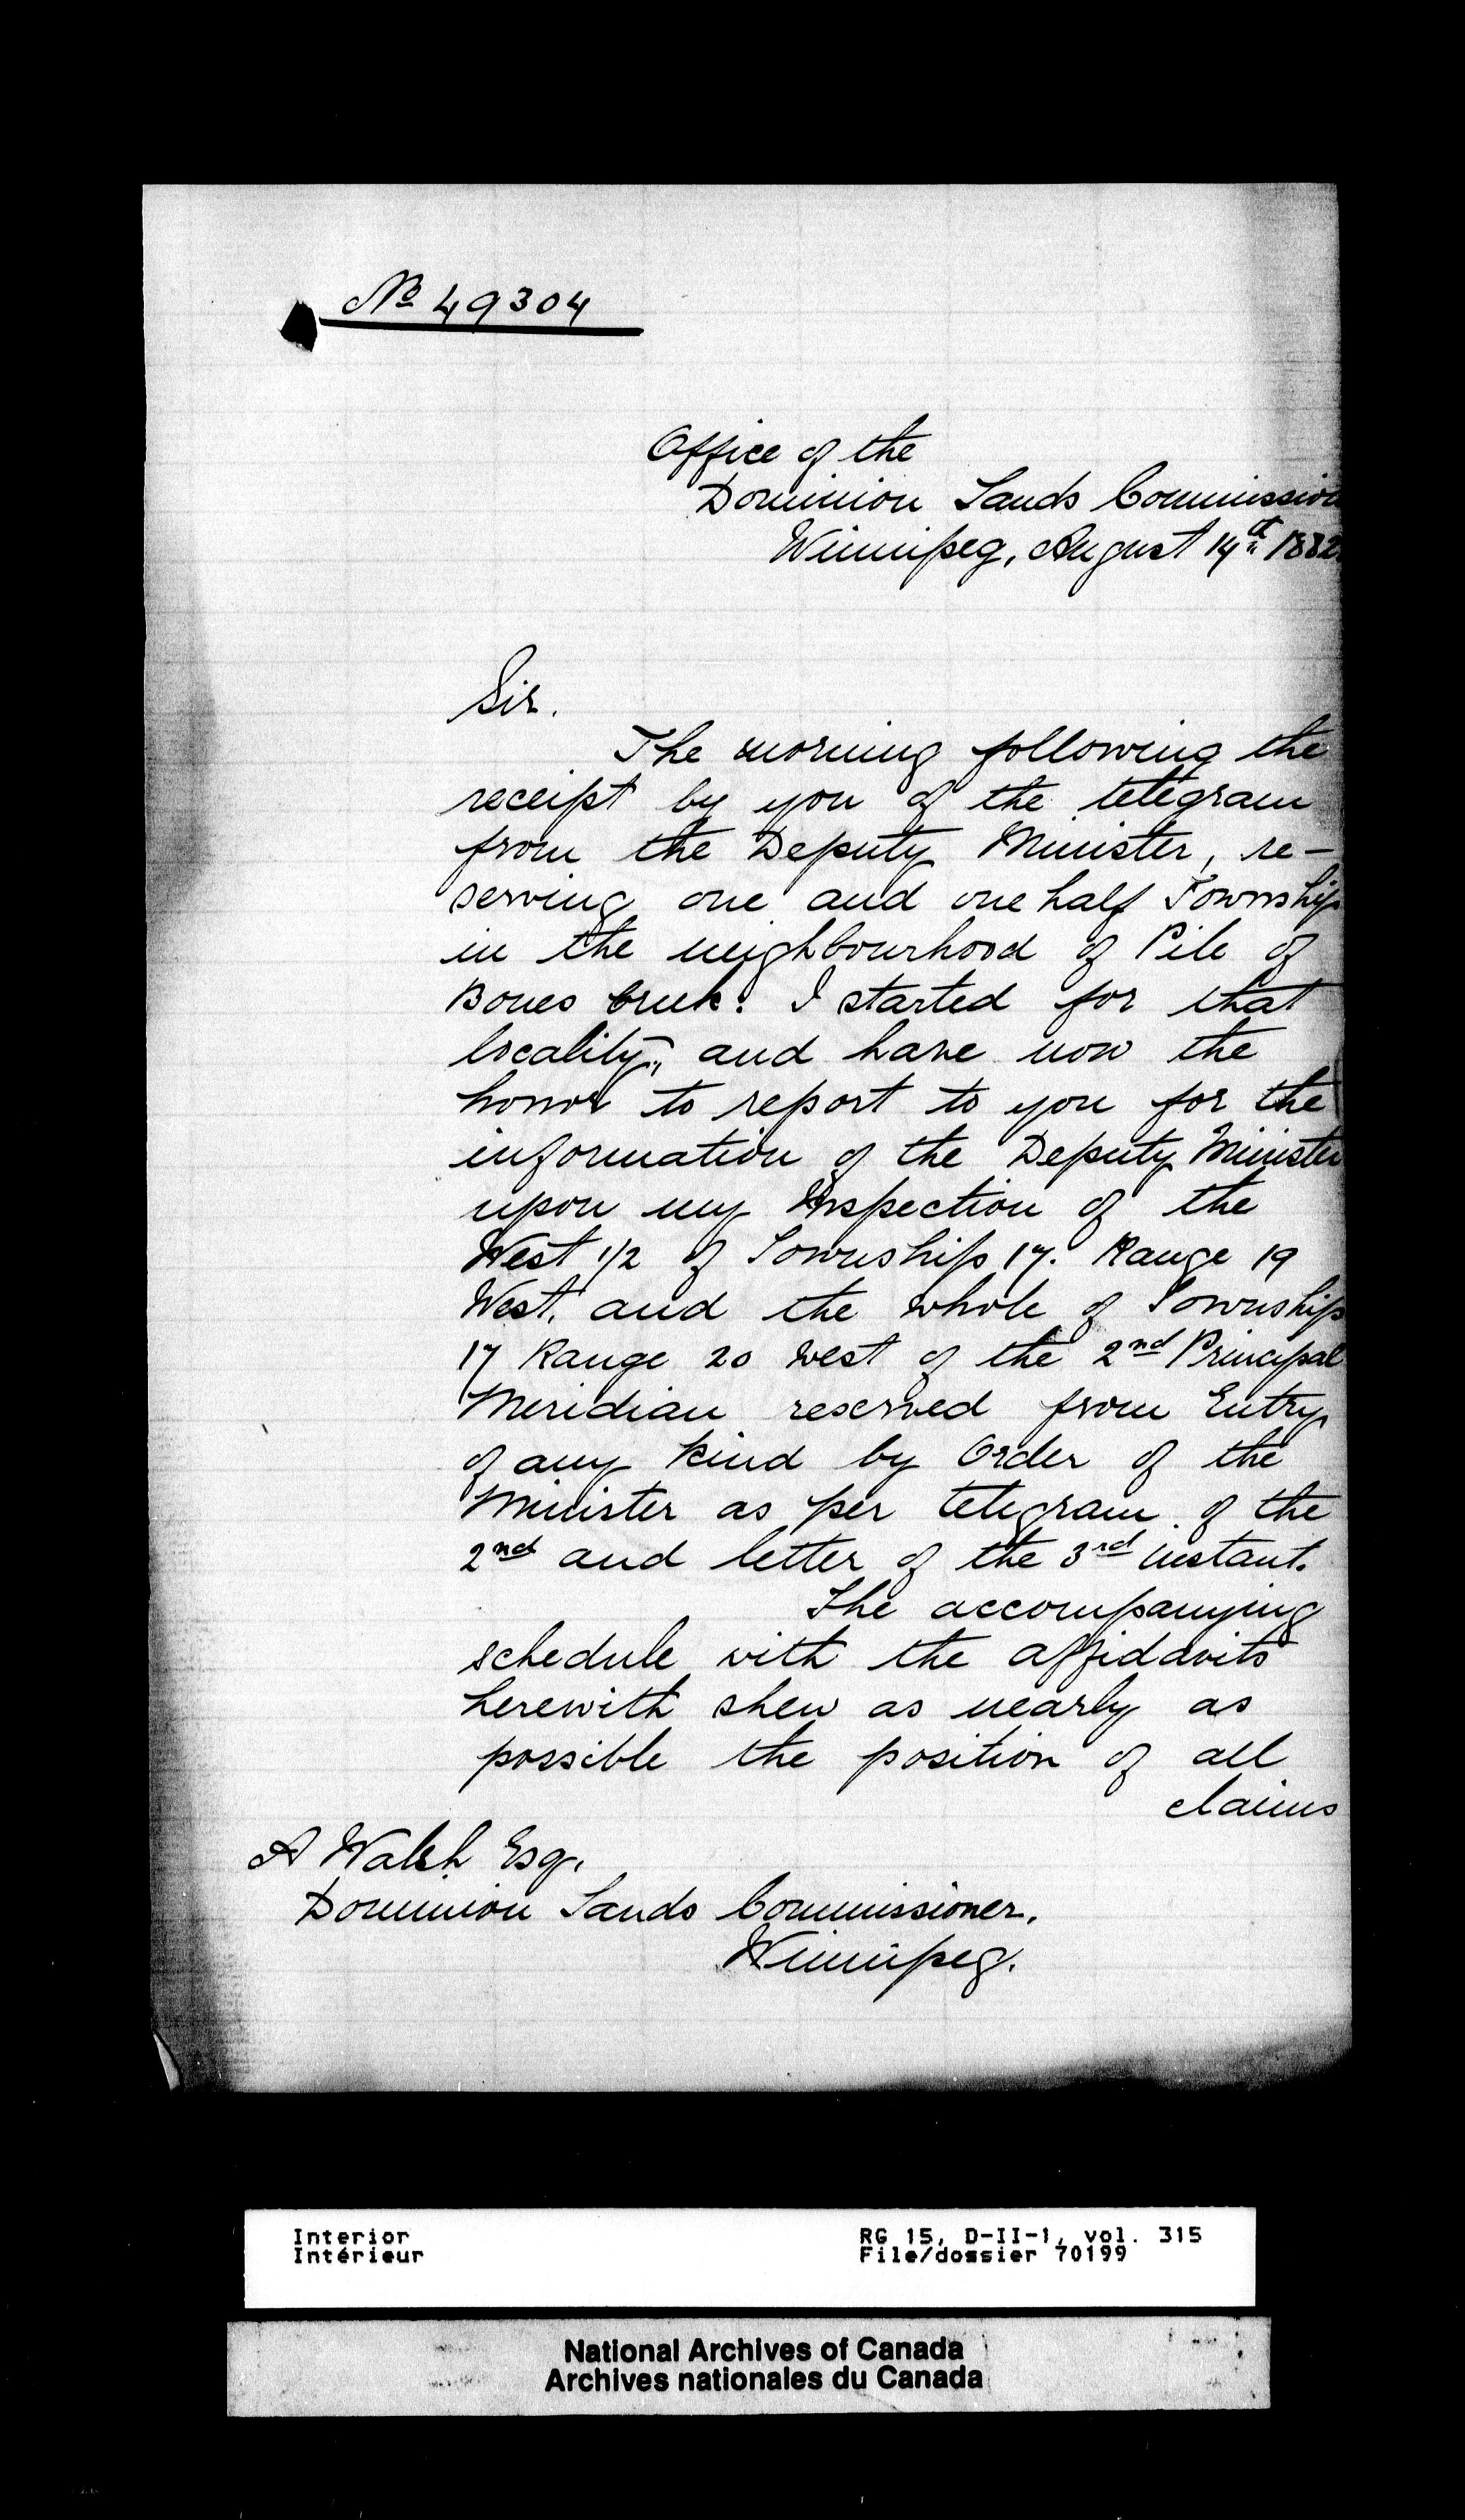 No 49304
Office of the
Dominion Lands Commission
Winnipeg, August 14th 1882
Sir.
The morning following the
receipt by you of the telegram
from the Deputy Minister, re-
serving one and one half Township
in the neighbourhood of Pile of
Bones Creek. I started for that
locality, and have now the
honor to report to you for the
information of the Deputy Minister
upon my Inspection of the
West 1/2 of Township 17. Range 19
West. and the whole of Township
17 Range 20 West of the 2nd Principal
Meridian reserved from Entry
of any kind by Order of the
Minister as per telegram of the
2nd and letter of the 3rd instant.
The accompanying
schedule with the affidavits
herewith shew as nearly as
possible the position of all
claims
A Walsh Esq.
Dominion Lands Commissioner.
Winnipeg.
Interior
Intérieur
RG 15, D-II-1, vol. 315
File/dossier 70199
National Archives of Canada
Archives nationales du Canada